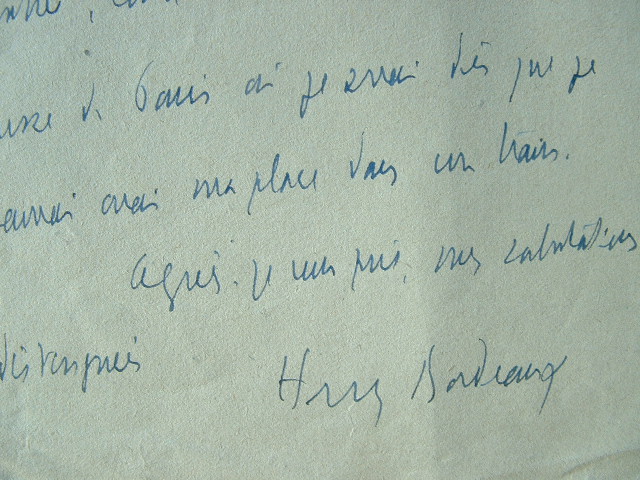 de Paris où je serai dès que je
avoir ma place dans un train.
Agréez, je vous prie, mes salutations
distinguées
Henry Bordeaux